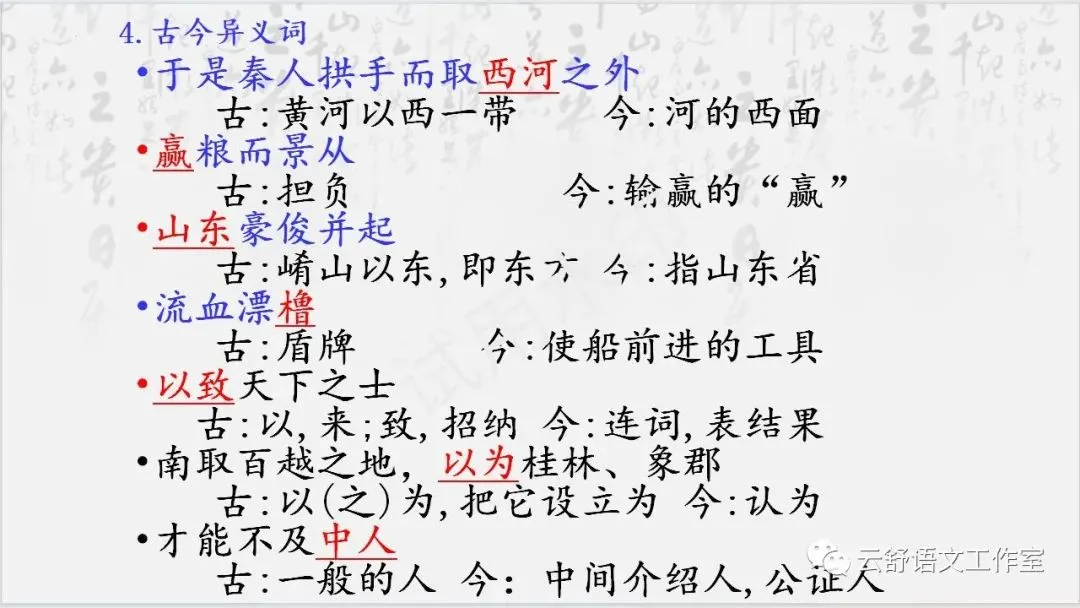 4.古今异义词
•于是秦人拱手而取西河之外
古:黄河以西一带 今:河的西面
•赢粮而景从
古:担负 今:输赢的“赢”
•山东豪俊并起
古:崤山以东,即东方 今:指山东省
•流血漂橹
古:盾牌 今:使船前进的工具
•以致天下之士
古:以,来;致,招纳 今:连词,表结果
•南取百越之地，以为桂林、象郡
古:以(之)为,把它设立为 今:认为
•才能不及中人
古:一般的人 今：中间介绍人,公证人
云舒语文工作室